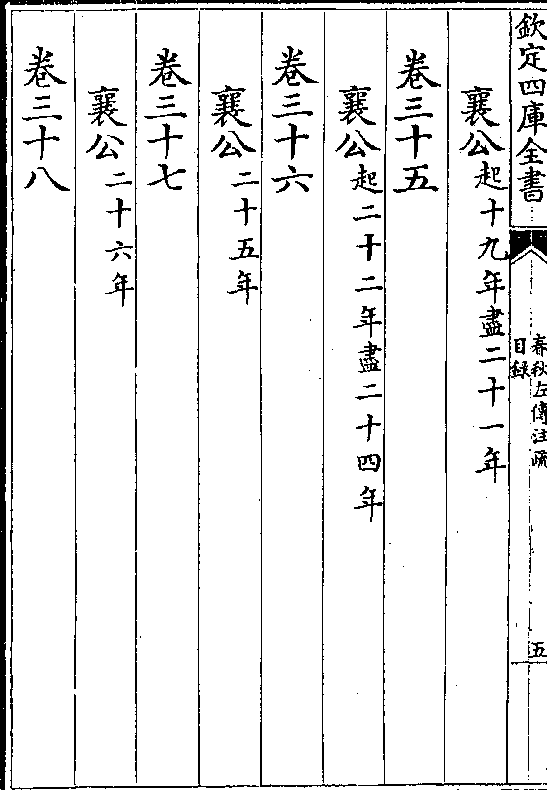 欽定四庫全書
春秋左傳注疏
目録
五
襄公起十九年盡二十一年
卷三十五
襄公起二十二年盡二十四年
卷三十六
襄公二十五年
卷三十七
襄公二十六年
卷三十八